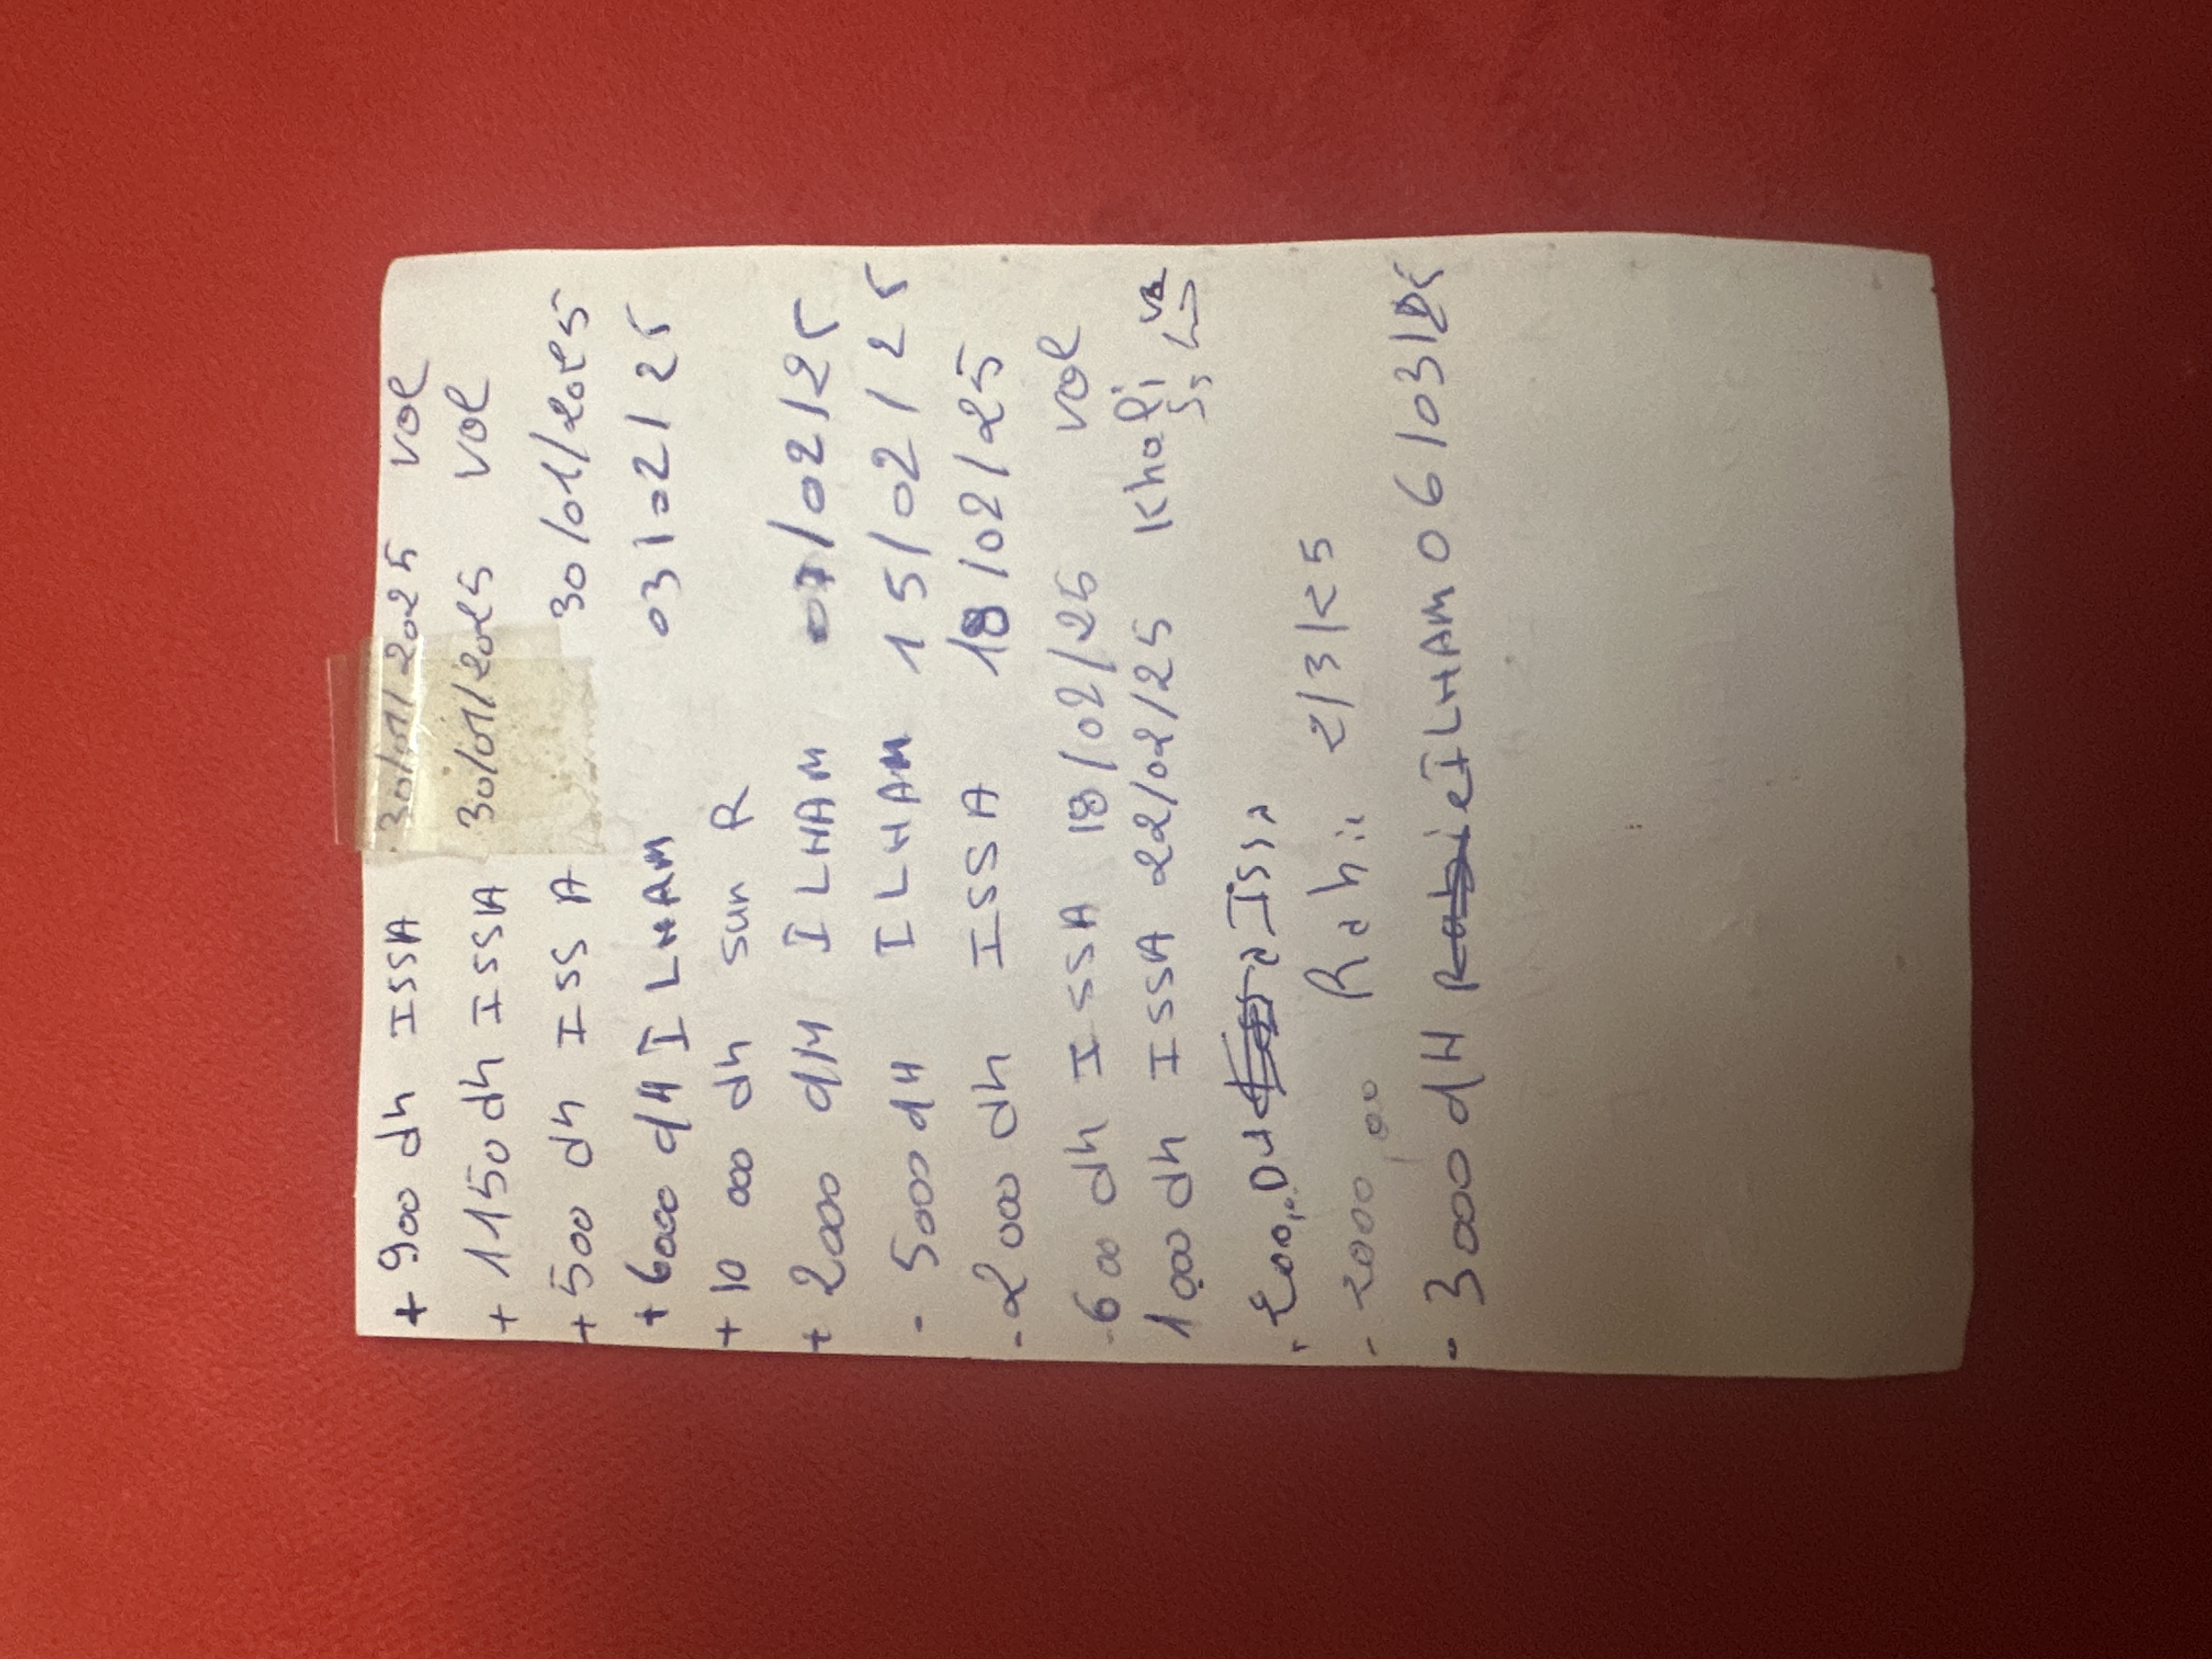 + 900 dh ISSA 30/01/2025 Vol
+ 1150 dh ISSA 30/01/2025 Vol
+ 500 dh ISSA 30/01/2025
+ 6000 dH ILHAM 03/02/25
+ 10 000 dh sun R
+ 2000 dH ILHAM 07/02/25
- 5000 dH ILHAM 15/02/25
- 2000 dh ISSA 18/02/25
- 600 dh ISSA 18/02/25 Vol
1000 dh ISSA 22/02/25 Khali
Issa
- 2000,00 Rabie 2/3/25
- 3000 dH Rabie ILHAM 06/03/25